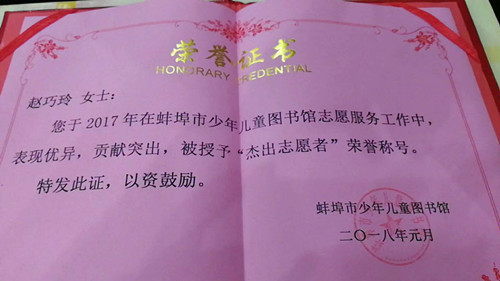 荣誉证书
HONORARY CREDENTIAL
赵巧玲 女士：
您于2017年在蚌埠市少年儿童图书馆志愿服务工作中，
表现优异，贡献突出，被授予“杰出志愿者”荣誉称号。
特发此证，以资鼓励。
蚌埠市少年儿童图书馆
二〇一八年元月